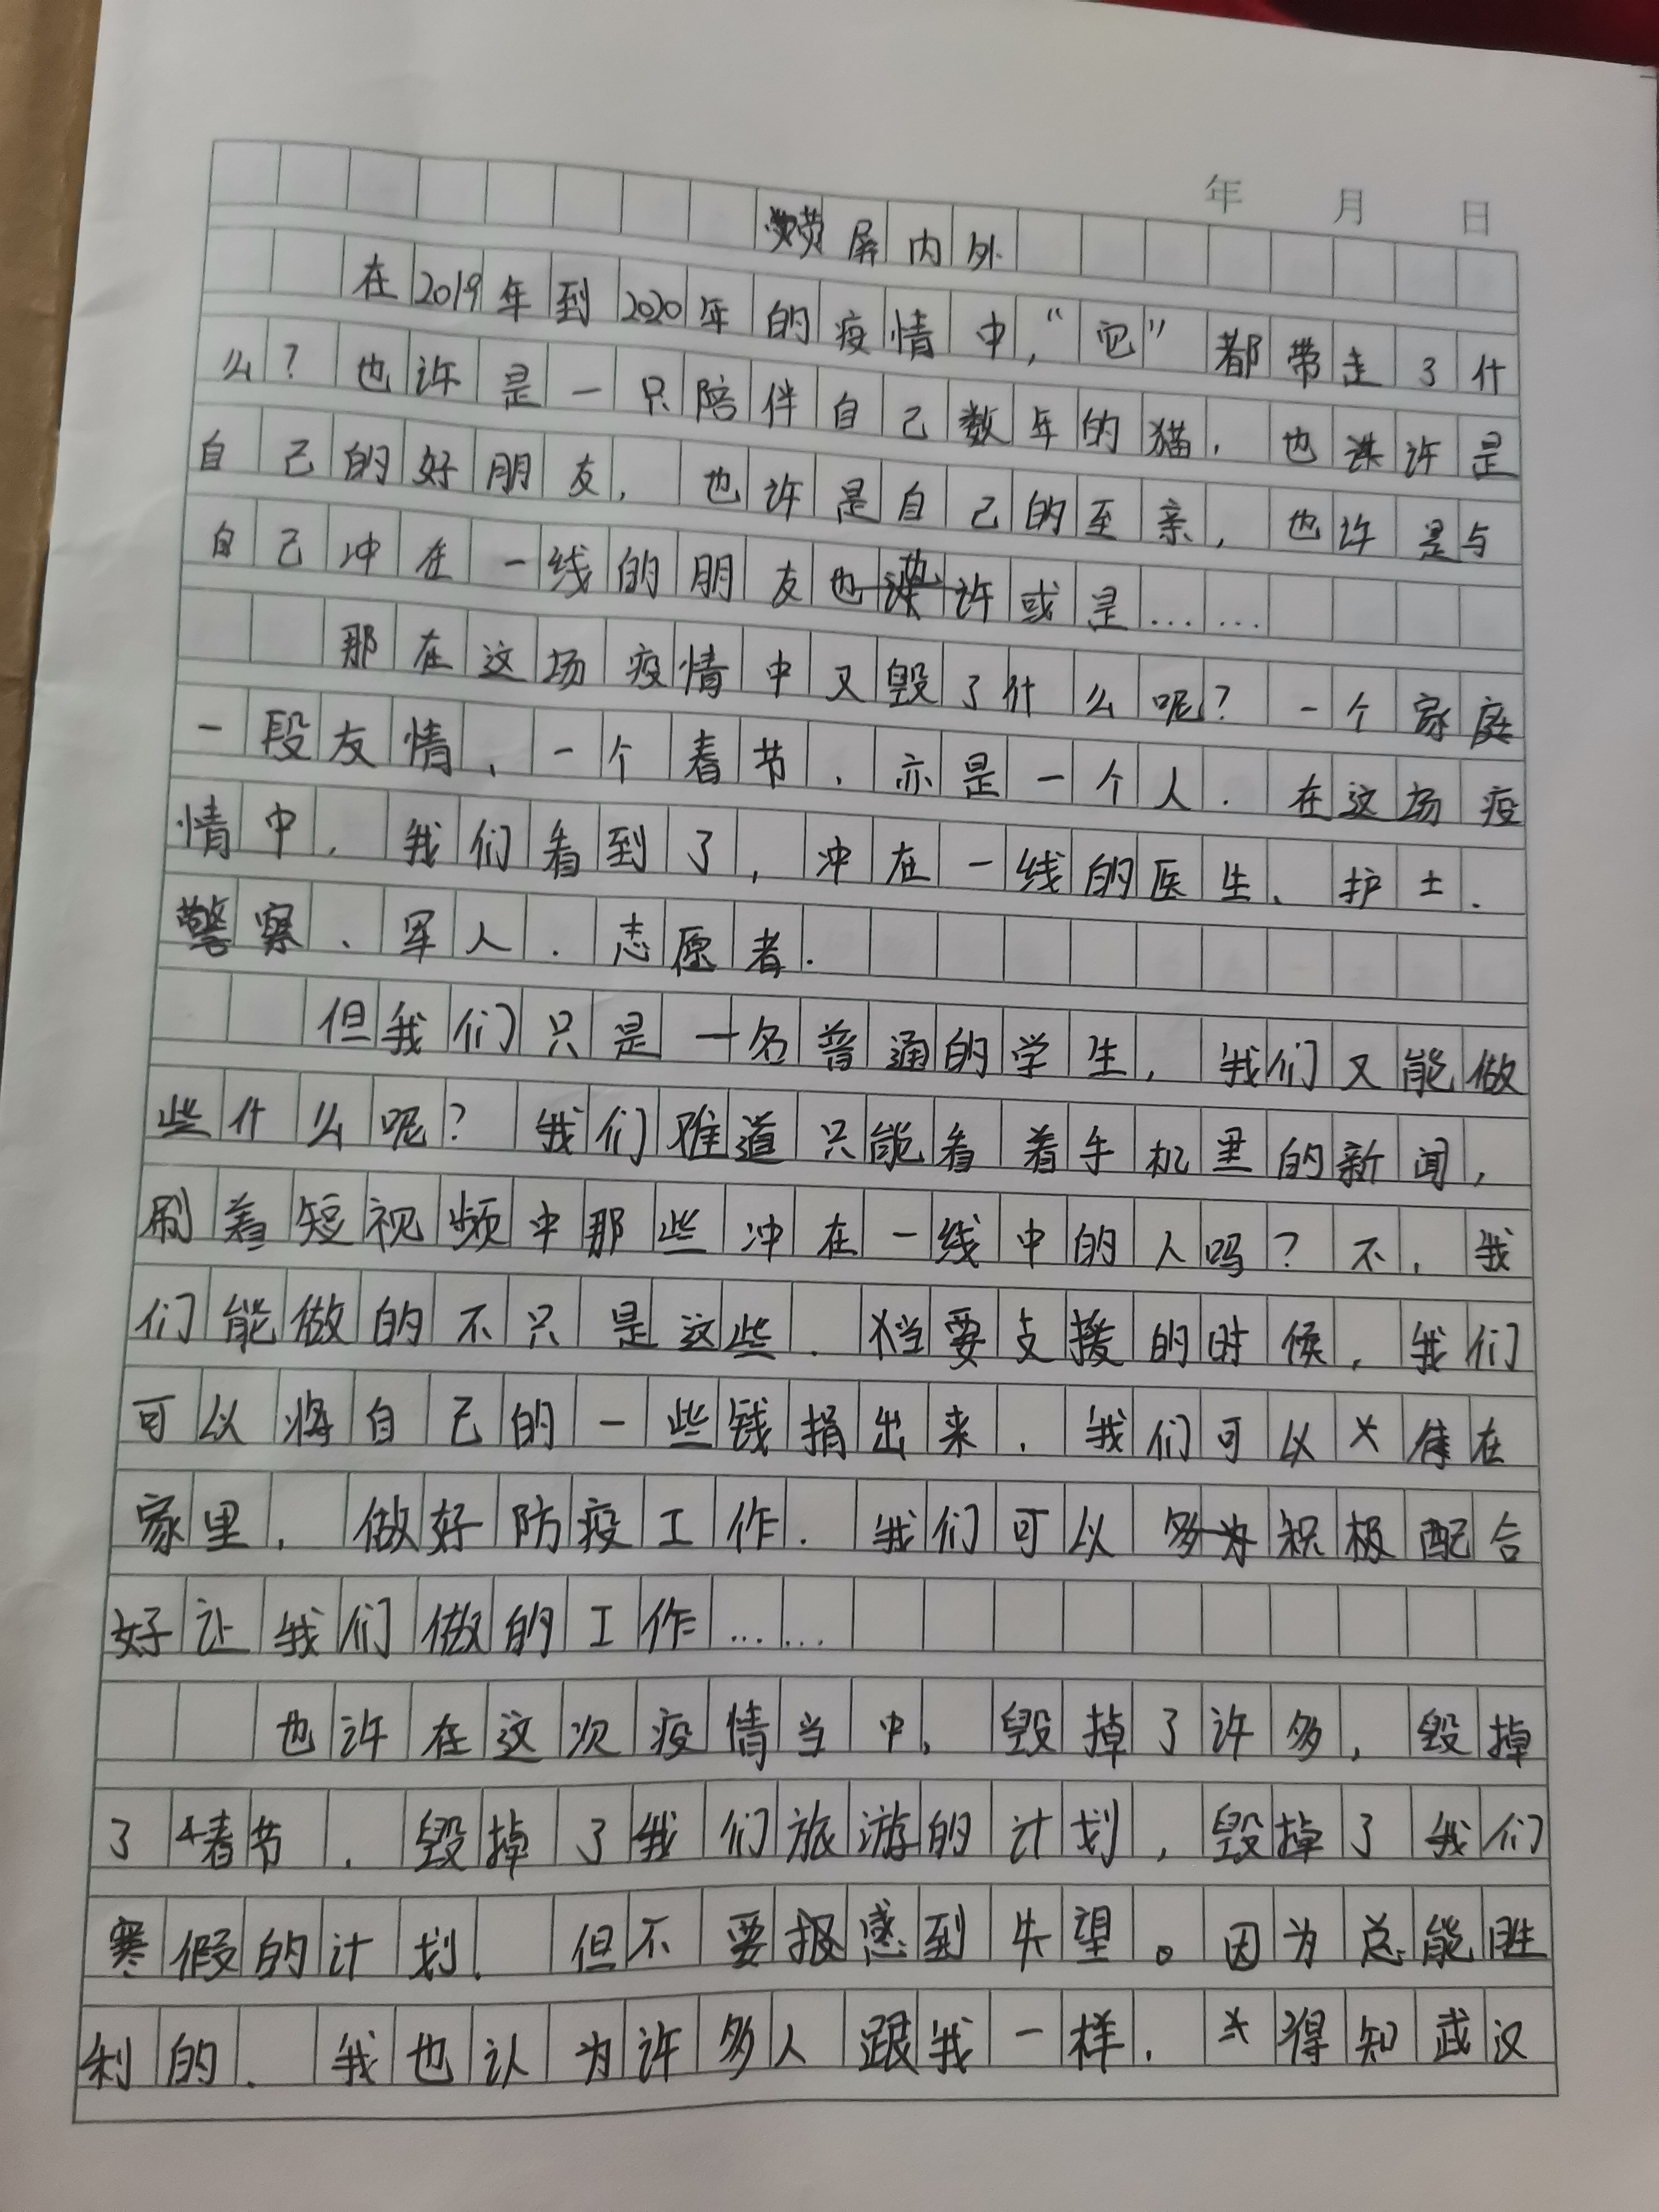 年 月 日
荧屏内外
在2019年到2020年的疫情中,“它”都带走了什
么?也许是一只陪伴自己数年的猫,也许是
自己的好朋友,也许是自己的至亲,也许是与
自己冲在一线的朋友也许或是……
那在这场疫情中又毁了什么呢?一个家庭
一段友情、一个春节、亦是一个人.在这场疫
情中,我们看到了,冲在一线的医生、护士.
警察、军人.志愿者.
但我们只是一名普通的学生,我们又能做
些什么呢?我们难道只能看着手机里的新闻,
刷着短视频中那些冲在一线中的人吗?不,我
们能做的不只是这些.当要支援的时候,我们
可以将自己的一些钱捐出来.我们可以在
家里,做好防疫工作.我们可以积极配合
好让我们做的工作……
也许在这次疫情当中,毁掉了许多,毁掉
了春节,毁掉了我们旅游的计划,毁掉了我们
寒假的计划.但不要感到失望。因为总能胜
利的.我也认为许多人跟我一样.当得知武汉